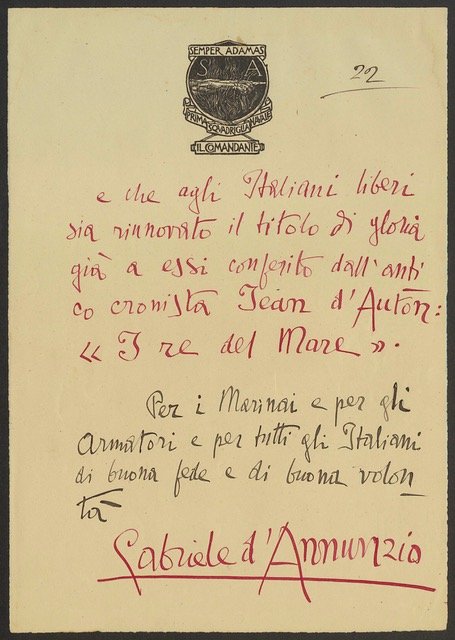 SEMPER ADAMAS
S A
PRIMA SQUADRIGLIA NAVALE
IL COMANDANTE
22
e che agli Italiani liberi
sia rinnovato il titolo di gloria
già a essi conferito dall'anti
co cronista Jean d'Autōn:
« I re del Mare ».
Per i Marinai e per gli
armatori e per tutti gli Italiani
di buona fede e di buona volon
tà
Gabriele d'Annunzio